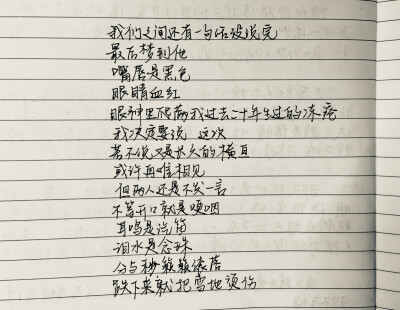 我们之间还有一句话没说完
最后梦到他
嘴唇是黑色
眼睛血红
眼神里爬满我过去二十年生过的冻疮
我决定要说 这次
若不说又是长久的横亘
或许再难相见
但两人还是不发一言
不等开口就是哽咽
耳鸣是汽笛
泪水是念珠
分与秒簌簌滚落
跌下来就把雪地烫伤